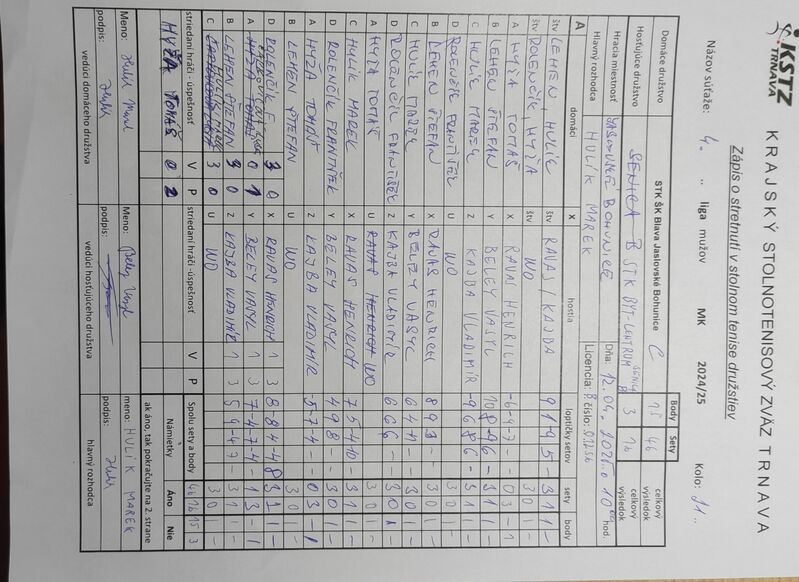 KSTZ
TRNAVA
KRAJSKÝ STOLNOTENISOVÝ ZVÄZ TRNAVA
Zápis o stretnutí v stolnom tenise družstiev
Názov súťaže: 4. liga mužov MK 2024/25 Kolo:
Body Sety
Domáce družstvo STK ŠK Blava Jaslovské Bohunice C 15 46 celkový výsledok
Hosťujúce družstvo SENICA B STK BYT-CENTRUM 3 16 celkový výsledok
Hracia miestnosť JASLOVSKÉ BOHUNICE Dňa: hod.
Hlavný rozhodca HULÍK MAREK Licencia: číslo:
A domáci X hostia loptičky setov sety body
štv LEHEN HULÍK štv RAVAS / KAJBA 9 1 -9 5 - 3 1 1 -
štv ROLENČÍK, HYŽA štv WO 3 0 1 -
A HYŽA TOMÁŠ X RAVAS HENRICH -6 -9 -7 - - 0 3 - 1
B LEHEN ŠTEFAN Y BELEY VASYL 3 1 1 -
C HULÍK MAREK Z KAJBA VLADIMÍR -9 6 8 6 - 3 1 1 -
D ROLENČÍK FRANTIŠEK U WO 3 0 1 -
B LEHEN ŠTEFAN X RAVAS HENRICH 8 9 3 - - 3 0 1 -
C HULÍK MAREK Y BELEY VASYL 3 0 1 -
D ROLENČÍK FRANTIŠEK Z KAJBA VLADIMÍR 6 6 6 - - 3 0 1 -
A HYŽA TOMÁŠ U WO 3 0 1 -
C HULÍK MAREK X RAVAS HENRICH 7 5 -4 10 - 3 1 1 -
D ROLENČÍK FRANTIŠEK Y BELEY VASYL 4 9 8 - - 3 0 1 -
A HYŽA TOMÁŠ Z KAJBA VLADIMÍR -5 -7 -4 - - 0 3 - 1
B LEHEN ŠTEFAN U WO 3 0 1 -
D ROLENČÍK F. 3 0 X RAVAS HENRICH 1 3 8 -8 4 -4 8 3
A 0 1 Y BELEY VASYL 1 3 7 -4 -7 -4 - 1 3 - 1
B LEHEN ŠTEFAN 3 0 Z KAJBA VLADIMÍR 1 3 5 9 -4 7 - 3 1 1 -
C 3 0 U WO 3 0 1 -
striedaní hráči - úspešnosť V P striedaní hráči -úspešnosť V P Spolu sety a body 46 16 15 3
HYŽA TOMÁŠ 0 2 Námietky Áno Nie
ak áno, tak pokračujte na 2. strane
Meno: Meno: meno: HULÍK MAREK
podpis: podpis: podpis:
vedúci domáceho družstva vedúci hosťujúceho družstva hlavný rozhodca